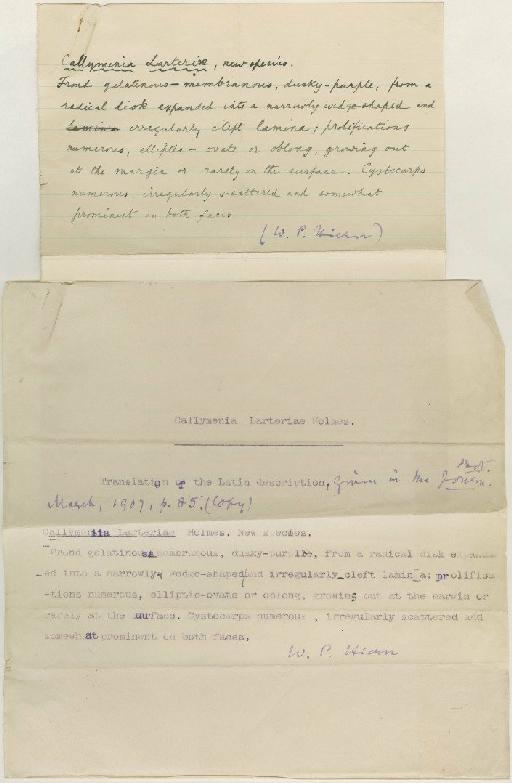 Callymenia Larteriæ, new species.
Frond gelatinous-membranous, dusky-purple, from a
radical disk expanded into a narrowly wedge-shaped and
lamina irregularly cleft lamina; prolifications
numerous, elliptic-ovate or oblong, growing out
at the margin or rarely on the surface. Cystocarps
numerous irregularly scattered and somewhat
prominent on both faces
(W. P. Hiern)
Callymenia Larteriae Holmes.
Translation of the Latin description, given in the Journ. Bot.
March, 1907, p. 85. (Copy)
Callymenia Larteriae Holmes. New Species.
Frond gelatinous membranous, dusky-purple, from a radical disk expand
ed into a narrowly wedge-shaped and irregularly cleft lamina: prolific
-tions numerous, elliptic-ovate or oblong, growing out at the margin or
rarely at the surface. Cystocarps numerous, irregularly scattered and
somewhat prominent on both faces.
W. P. Hiern